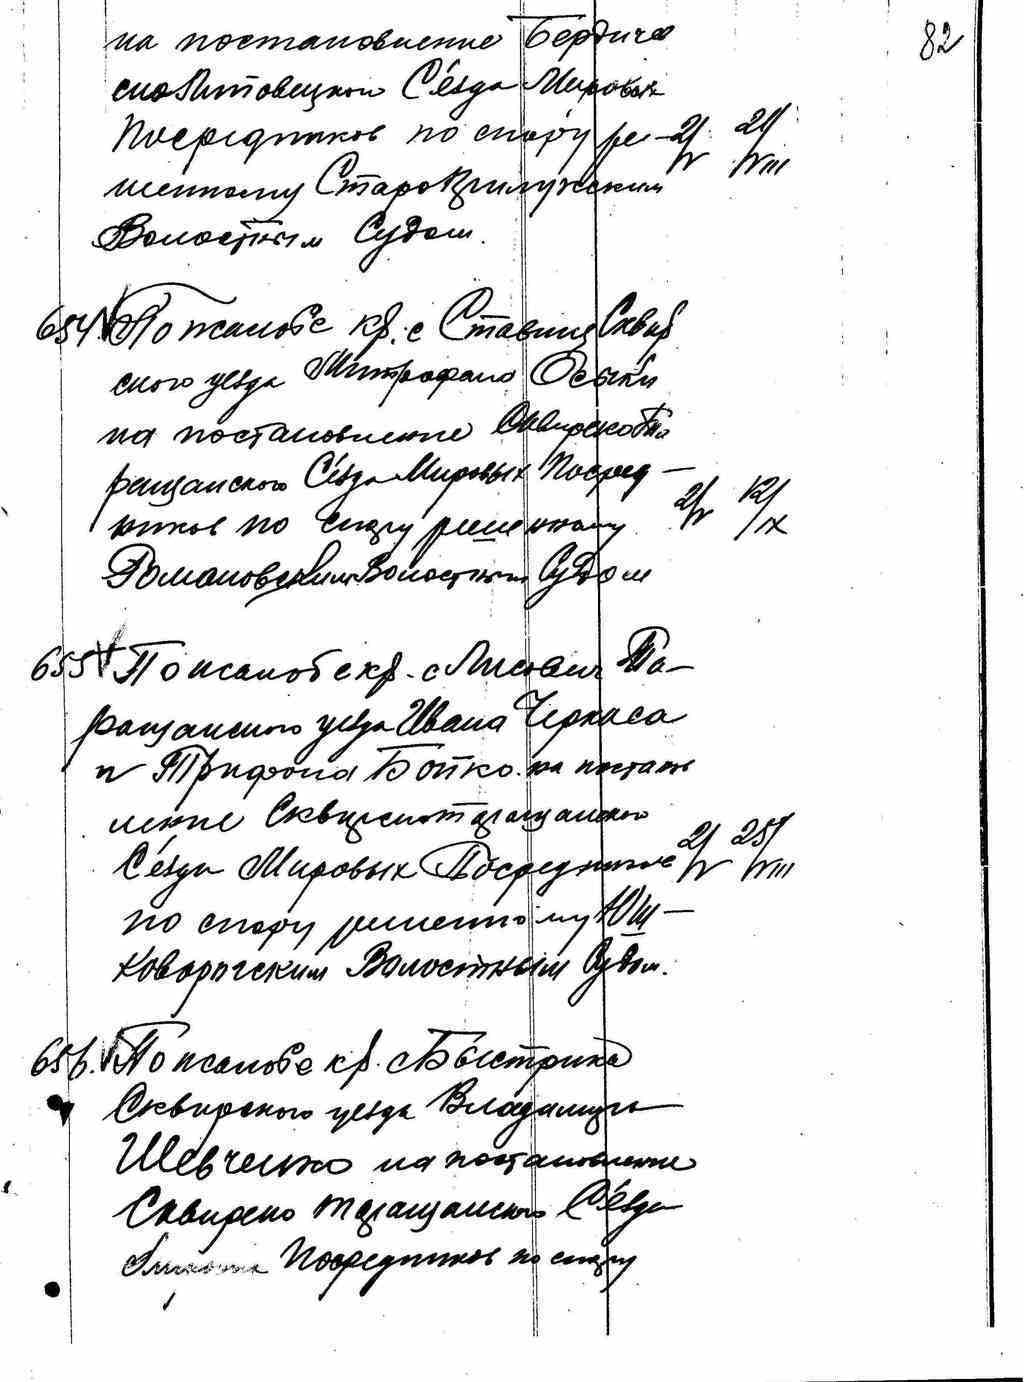 82
на постановление Бердичев
ско Литовецкого Съезда Мировых
Посредников по спору ре- 2/V 21/VIII
шенному Староприлужским
Волостным Судом.
654. По жалобе кр. с Ставищ Сквир
ского уезда Митрофана Осыки
на постановление Сквирско Та
ращанского Съезда Мировых Посред-
ников по спору решенному 2/V 12/IX
Романовским Волостным Судом
655 По жалобе кр. с Лисович Та-
ращанского уезда Ивана Черкаса
и Трифона Бойко на постанов
ление Сквирско таращанского
Съезда Мировых Посредников 2/V 25/VIII
по спору решенному Юш-
коворогским Волостным Судом.
656. По жалобе кр. с Быстрика
Сквирского уезда Владимира
Шевченко на постановление
Сквирско таращанского Съезда
Посредников по спору